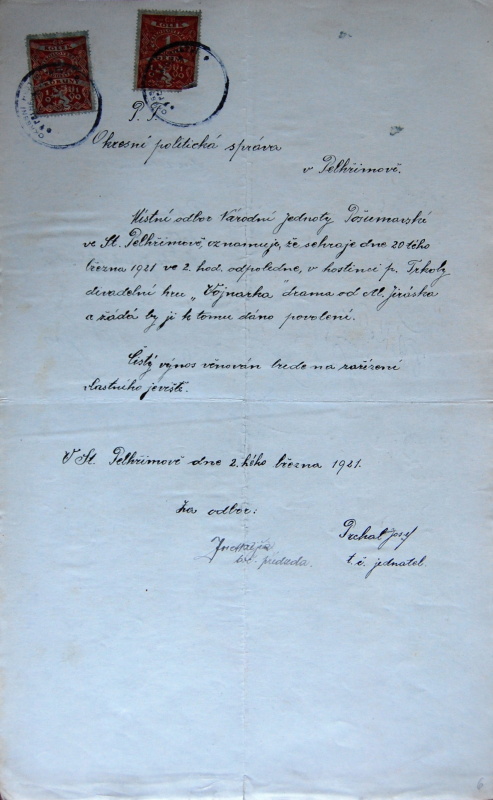 KOLEK
KOLEK
P. T.
Okresní politická správa
v Pelhřimově.
Místní odbor Národní jednoty Pošumavské
ve St. Pelhřimově, oznamuje, že sehraje dne 20tého
března 1921 ve 2. hod. odpoledne, v hostinci p. Trkoly
divadelní hru „Vojnarka" drama od Al. Jiráska
a žádá by jí k tomu dáno povolení.
Čistý výnos věnován bude na zařízení
vlastního jeviště.
V St. Pelhřimově dne 2.hého března 1921.
Za odbor:
Puchal Josef
t. č. předseda.
t. č. jednatel.